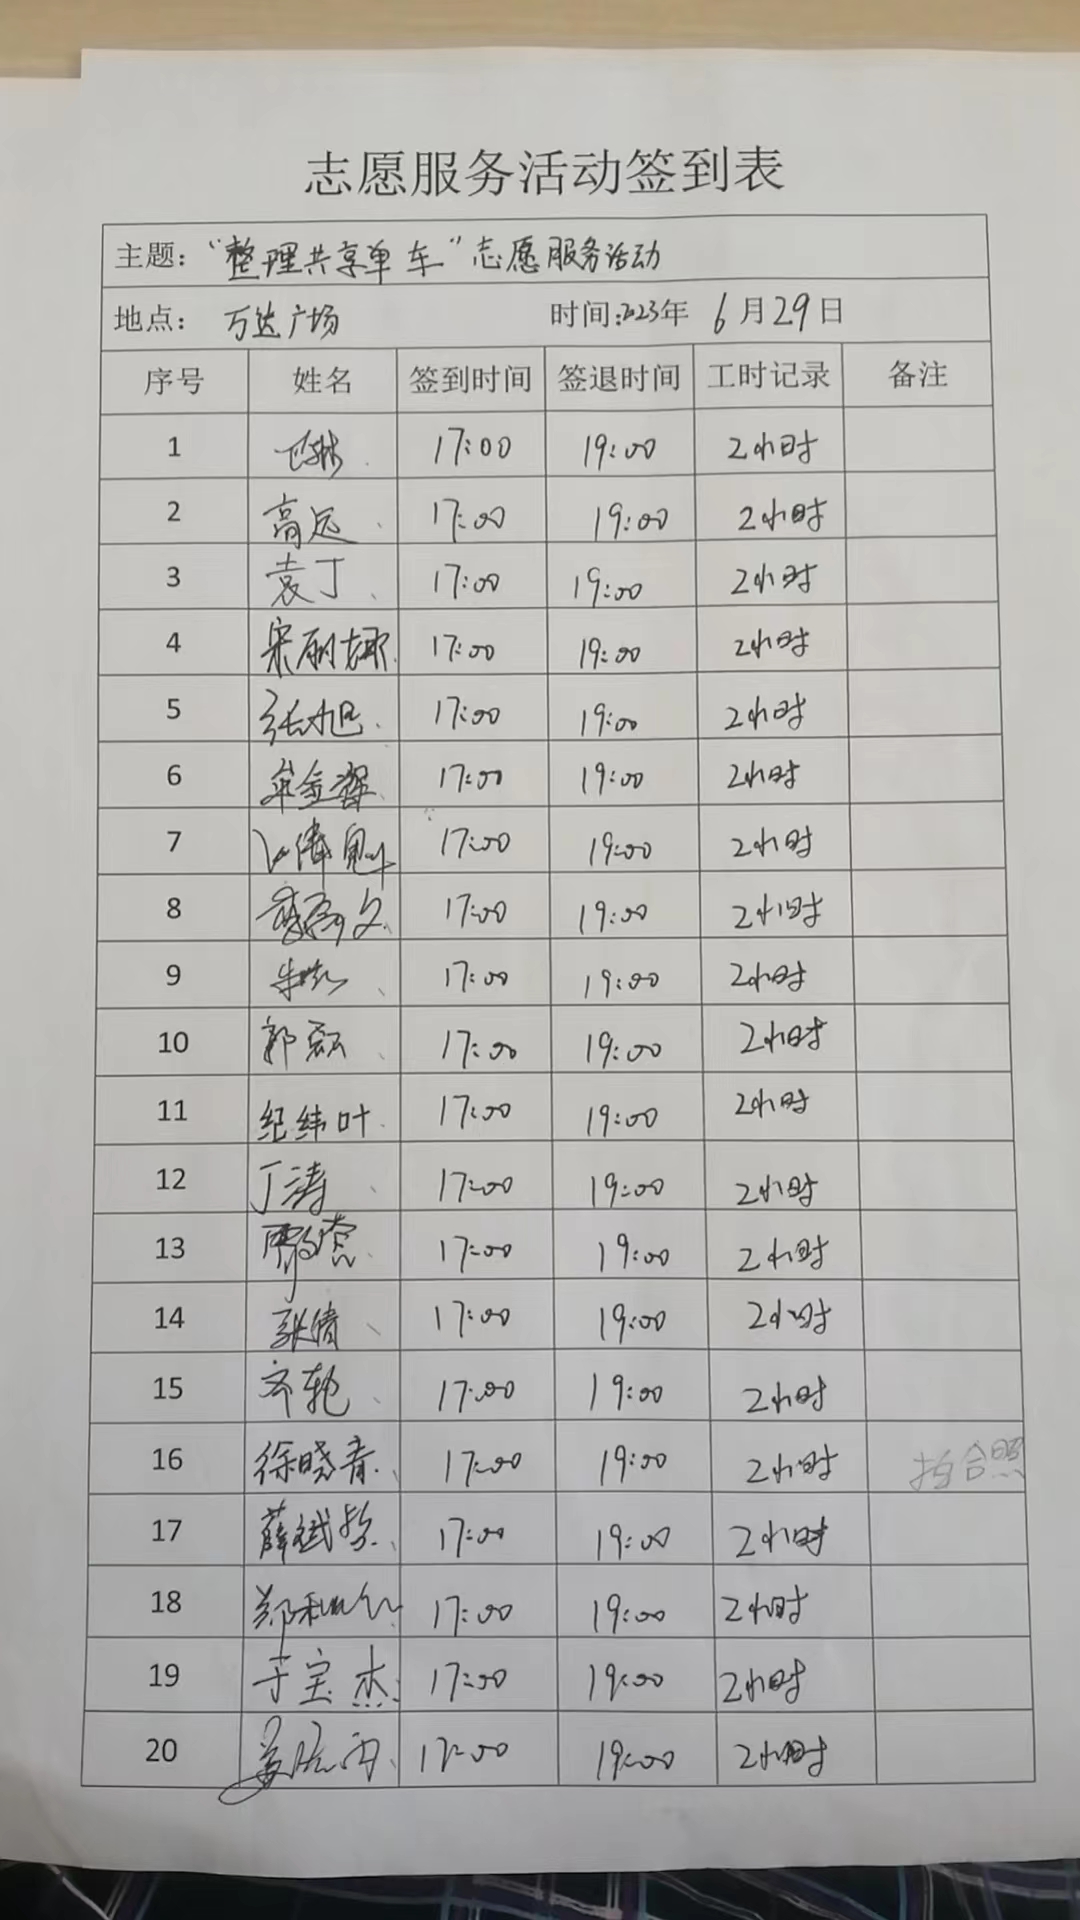 志愿服务活动签到表
主题："整理共享单车"志愿服务活动
地点：万达广场 时间:2023年 6月29日
序号 姓名 签到时间 签退时间 工时记录 备注
1 17:00 19:00 2小时
2 高远 17:00 19:00 2小时
3 袁丁 17:00 19:00 2小时
4 宋丽娜 17:00 19:00 2小时
5 张旭 17:00 19:00 2小时
6 17:00 19:00 2小时
7 17:00 19:00 2小时
8 17:00 19:00 2小时
9 17:00 19:00 2小时
10 郭磊 17:00 19:00 2小时
11 纪纬叶 17:00 19:00 2小时
12 丁涛 17:00 19:00 2小时
13 17:00 19:00 2小时
14 张倩 17:00 19:00 2小时
15 齐艳 17:00 19:00 2小时
16 徐晓青 17:00 19:00 2小时 拍合照
17 17:00 19:00 2小时
18 17:00 19:00 2小时
19 于宝杰 17:00 19:00 2小时
20 17:00 19:00 2小时